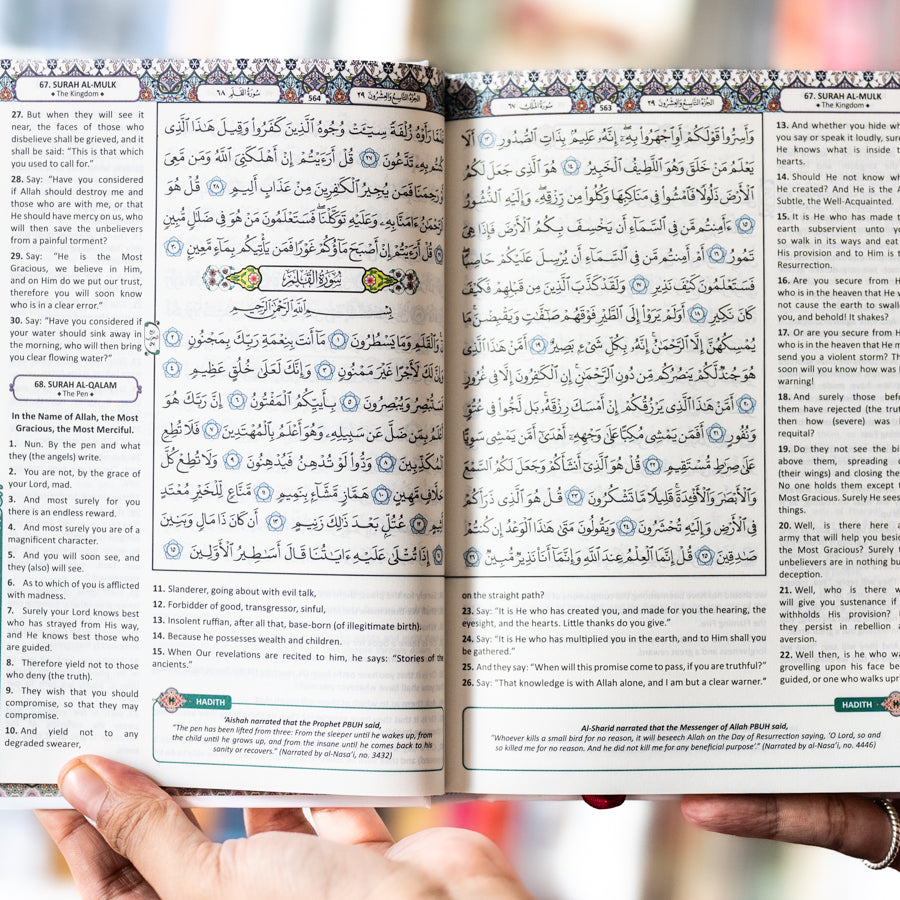 67. SURAH AL-MULK
The Kingdom
الجزء التاسع والعشرون ٢٩
563
سورة الملك ٦٧
وَأَسِرُّوا۟ قَوْلَكُمْ أَوِ ٱجْهَرُوا۟ بِهِۦٓ إِنَّهُۥ عَلِيمٌۢ بِذَاتِ ٱلصُّدُورِ ١٣ أَلَا
يَعْلَمُ مَنْ خَلَقَ وَهُوَ ٱللَّطِيفُ ٱلْخَبِيرُ ١٤ هُوَ ٱلَّذِى جَعَلَ لَكُمُ
ٱلْأَرْضَ ذَلُولًا فَٱمْشُوا۟ فِى مَنَاكِبِهَا وَكُلُوا۟ مِن رِّزْقِهِۦ وَإِلَيْهِ ٱلنُّشُورُ
١٥ ءَأَمِنتُم مَّن فِى ٱلسَّمَآءِ أَن يَخْسِفَ بِكُمُ ٱلْأَرْضَ فَإِذَا هِىَ
تَمُورُ ١٦ أَمْ أَمِنتُم مَّن فِى ٱلسَّمَآءِ أَن يُرْسِلَ عَلَيْكُمْ حَاصِبًا
فَسَتَعْلَمُونَ كَيْفَ نَذِيرِ ١٧ وَلَقَدْ كَذَّبَ ٱلَّذِينَ مِن قَبْلِهِمْ فَكَيْفَ
كَانَ نَكِيرِ ١٨ أَوَلَمْ يَرَوْا۟ إِلَى ٱلطَّيْرِ فَوْقَهُمْ صَٰٓفَّٰتٍ وَيَقْبِضْنَ مَا
يُمْسِكُهُنَّ إِلَّا ٱلرَّحْمَٰنُ إِنَّهُۥ بِكُلِّ شَىْءٍۭ بَصِيرٌ ١٩ أَمَّنْ هَٰذَا ٱلَّذِى
هُوَ جُندٌ لَّكُمْ يَنصُرُكُم مِّن دُونِ ٱلرَّحْمَٰنِ إِنِ ٱلْكَٰفِرُونَ إِلَّا فِى غُرُورٍ
٢٠ أَمَّنْ هَٰذَا ٱلَّذِى يَرْزُقُكُمْ إِنْ أَمْسَكَ رِزْقَهُۥ بَل لَّجُّوا۟ فِى عُتُوٍّ
وَنُفُورٍ ٢١ أَفَمَن يَمْشِى مُكِبًّا عَلَىٰ وَجْهِهِۦٓ أَهْدَىٰٓ أَمَّن يَمْشِى سَوِيًّا
عَلَىٰ صِرَٰطٍ مُّسْتَقِيمٍ ٢٢ قُلْ هُوَ ٱلَّذِىٓ أَنشَأَكُمْ وَجَعَلَ لَكُمُ ٱلسَّمْعَ
وَٱلْأَبْصَٰرَ وَٱلْأَفْـِٔدَةَ قَلِيلًا مَّا تَشْكُرُونَ ٢٣ قُلْ هُوَ ٱلَّذِى ذَرَأَكُمْ
فِى ٱلْأَرْضِ وَإِلَيْهِ تُحْشَرُونَ ٢٤ وَيَقُولُونَ مَتَىٰ هَٰذَا ٱلْوَعْدُ إِن كُنتُمْ
صَٰدِقِينَ ٢٥ قُلْ إِنَّمَا ٱلْعِلْمُ عِندَ ٱللَّهِ وَإِنَّمَآ أَنَا۠ نَذِيرٌ مُّبِينٌ ٢٦
13. And whether you hide
you say or speak it loudly,
He knows what is inside
hearts.
14. Should He not know
He created? And He is the
Subtle, the Well-Acquainted.
15. It is He who has made
earth subservient unto
so walk in its ways and eat
His provision and to Him is
Resurrection.
16. Are you secure from
who is in the heaven that He
not cause the earth to
you, and behold! It shakes?
17. Or are you secure from
who is in the heaven that He
send you a violent storm?
soon will you know how was
warning!
18. And surely those
them have rejected (the
then how (severe) was
requital?
19. Do they not see the
above them, spreading
(their wings) and closing
No one holds them except
Most Gracious. Surely He
things.
20. Well, is there here
army that will help you
the Most Gracious? Surely
unbelievers are in nothing
deception.
21. Well, who is there
will give you sustenance if
withholds His provision?
they persist in rebellion
aversion.
22. Well then, is he who
grovelling upon his face
guided, or one who walks
on the straight path?
23. Say: "It is He who has created you, and made for you the hearing, the
eyesight, and the hearts. Little thanks do you give."
24. Say: "It is He who has multiplied you in the earth, and to Him shall you
be gathered."
25. And they say: "When will this promise come to pass, if you are truthful?"
26. Say: "That knowledge is with Allah alone, and I am but a clear warner."
HADITH
Al-Sharid narrated that the Messenger of Allah PBUH said,
"Whoever kills a small bird for no reason, it will beseech Allah on the Day of Resurrection saying, 'O Lord, so and
so killed me for no reason. And he did not kill me for any beneficial purpose'." (Narrated by al-Nasa'i, no. 4446)
67. SURAH AL-MULK
The Kingdom
الجزء التاسع والعشرون ٢٩
564
سورة القلم ٦٨
رَأَوْهُ زُلْفَةً سِيٓـَٔتْ وُجُوهُ ٱلَّذِينَ كَفَرُوا۟ وَقِيلَ هَٰذَا ٱلَّذِى
كُنتُم بِهِۦ تَدَّعُونَ ٢٧ قُلْ أَرَءَيْتُمْ إِنْ أَهْلَكَنِىَ ٱللَّهُ وَمَن مَّعِىَ
أَوْ رَحِمَنَا فَمَن يُجِيرُ ٱلْكَٰفِرِينَ مِنْ عَذَابٍ أَلِيمٍ ٢٨ قُلْ هُوَ
ٱلرَّحْمَٰنُ ءَامَنَّا بِهِۦ وَعَلَيْهِ تَوَكَّلْنَا فَسَتَعْلَمُونَ مَنْ هُوَ فِى ضَلَٰلٍ مُّبِينٍ
قُلْ أَرَءَيْتُمْ إِنْ أَصْبَحَ مَآؤُكُمْ غَوْرًا فَمَن يَأْتِيكُم بِمَآءٍ مَّعِينٍۭ ٣٠
سُورَةُ ٱلْقَلَمِ
بِسْمِ ٱللَّهِ ٱلرَّحْمَٰنِ ٱلرَّحِيمِ
وَٱلْقَلَمِ وَمَا يَسْطُرُونَ ١ مَآ أَنتَ بِنِعْمَةِ رَبِّكَ بِمَجْنُونٍ ٢
وَإِنَّ لَكَ لَأَجْرًا غَيْرَ مَمْنُونٍ ٣ وَإِنَّكَ لَعَلَىٰ خُلُقٍ عَظِيمٍ ٤
فَسَتُبْصِرُ وَيُبْصِرُونَ ٥ بِأَييِّكُمُ ٱلْمَفْتُونُ ٦ إِنَّ رَبَّكَ هُوَ
أَعْلَمُ بِمَن ضَلَّ عَن سَبِيلِهِۦ وَهُوَ أَعْلَمُ بِٱلْمُهْتَدِينَ ٧ فَلَا تُطِعِ
ٱلْمُكَذِّبِينَ ٨ وَدُّوا۟ لَوْ تُدْهِنُ فَيُدْهِنُونَ ٩ وَلَا تُطِعْ كُلَّ
حَلَّافٍ مَّهِينٍ ١٠ هَمَّازٍ مَّشَّآءٍۭ بِنَمِيمٍ ١١ مَّنَّاعٍ لِّلْخَيْرِ مُعْتَدٍ
أَثِيمٍ ١٢ عُتُلٍّۭ بَعْدَ ذَٰلِكَ زَنِيمٍ ١٣ أَن كَانَ ذَا مَالٍ وَبَنِينَ
إِذَا تُتْلَىٰ عَلَيْهِ ءَايَٰتُنَا قَالَ أَسَٰطِيرُ ٱلْأَوَّلِينَ ١٥
27. But when they will see it
near, the faces of those who
disbelieve shall be grieved, and it
shall be said: "This is that which
you used to call for."
28. Say: "Have you considered
if Allah should destroy me and
those who are with me, or that
He should have mercy on us, who
will then save the unbelievers
from a painful torment?
29. Say: "He is the Most
Gracious, we believe in Him,
and on Him do we put our trust,
therefore you will soon know
who is in a clear error."
30. Say: "Have you considered if
your water should sink away in
the morning, who will then bring
you clear flowing water?"
68. SURAH AL-QALAM
The Pen
In the Name of Allah, the Most
Gracious, the Most Merciful.
1. Nun. By the pen and what
they (the angels) write.
2. You are not, by the grace of
your Lord, mad.
3. And most surely for you
there is an endless reward.
4. And most surely you are of a
magnificent character.
5. And you will soon see, and
they (also) will see.
6. As to which of you is afflicted
with madness.
7. Surely your Lord knows best
who has strayed from His way,
and He knows best those who
are guided.
8. Therefore yield not to those
who deny (the truth).
9. They wish that you should
compromise, so that they may
compromise.
10. And yield not to any
degraded swearer,
11. Slanderer, going about with evil talk,
12. Forbidder of good, transgressor, sinful,
13. Insolent ruffian, after all that, base-born (of illegitimate birth).
14. Because he possesses wealth and children.
15. When Our revelations are recited to him, he says: "Stories of the
ancients."
HADITH
'Aishah narrated that the Prophet PBUH said,
"The pen has been lifted from three: From the sleeper until he wakes up, from
the child until he grows up, and from the insane until he comes back to his
sanity or recovers." (Narrated by al-Nasa'i, no. 3432)